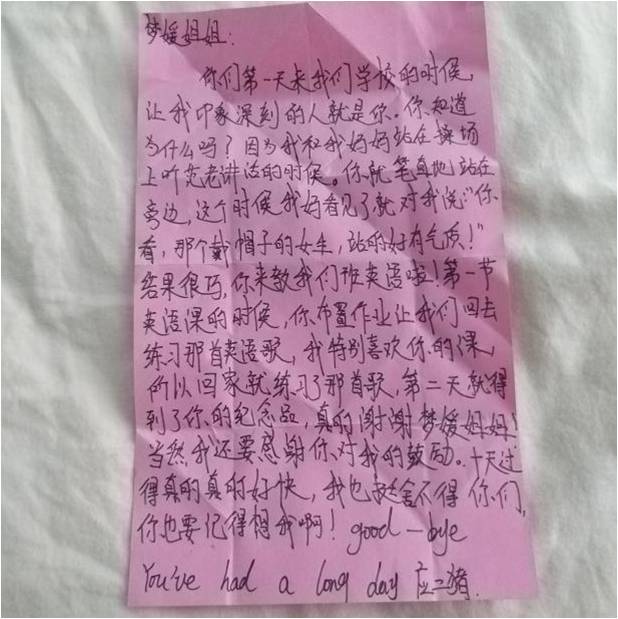 梦媛姐姐:
你们第一天来我们学校的时候,
让我印象深刻的人就是你。你知道
为什么吗?因为我和我妈妈站在操场
上听范老讲话的时候。你就笔直地站在
旁边,这个时候我妈看见了就对我说:"你
看,那个戴帽子的女生,站的好有气质!"
结果很巧,你来教我们班英语啦!第一节
英语课的时候,你布置作业让我们回去
练习那首英语歌,我特别喜欢你的课,
所以回家就练习了那首歌,第二天就得
到了你的纪念品,真的谢谢梦媛姐姐!
当然我还要感谢你对我的鼓励。十天过
得真的真的好快,我也舍不得你们,
你也要记得想我啊! good-bye
You've had a long day 应二猪.